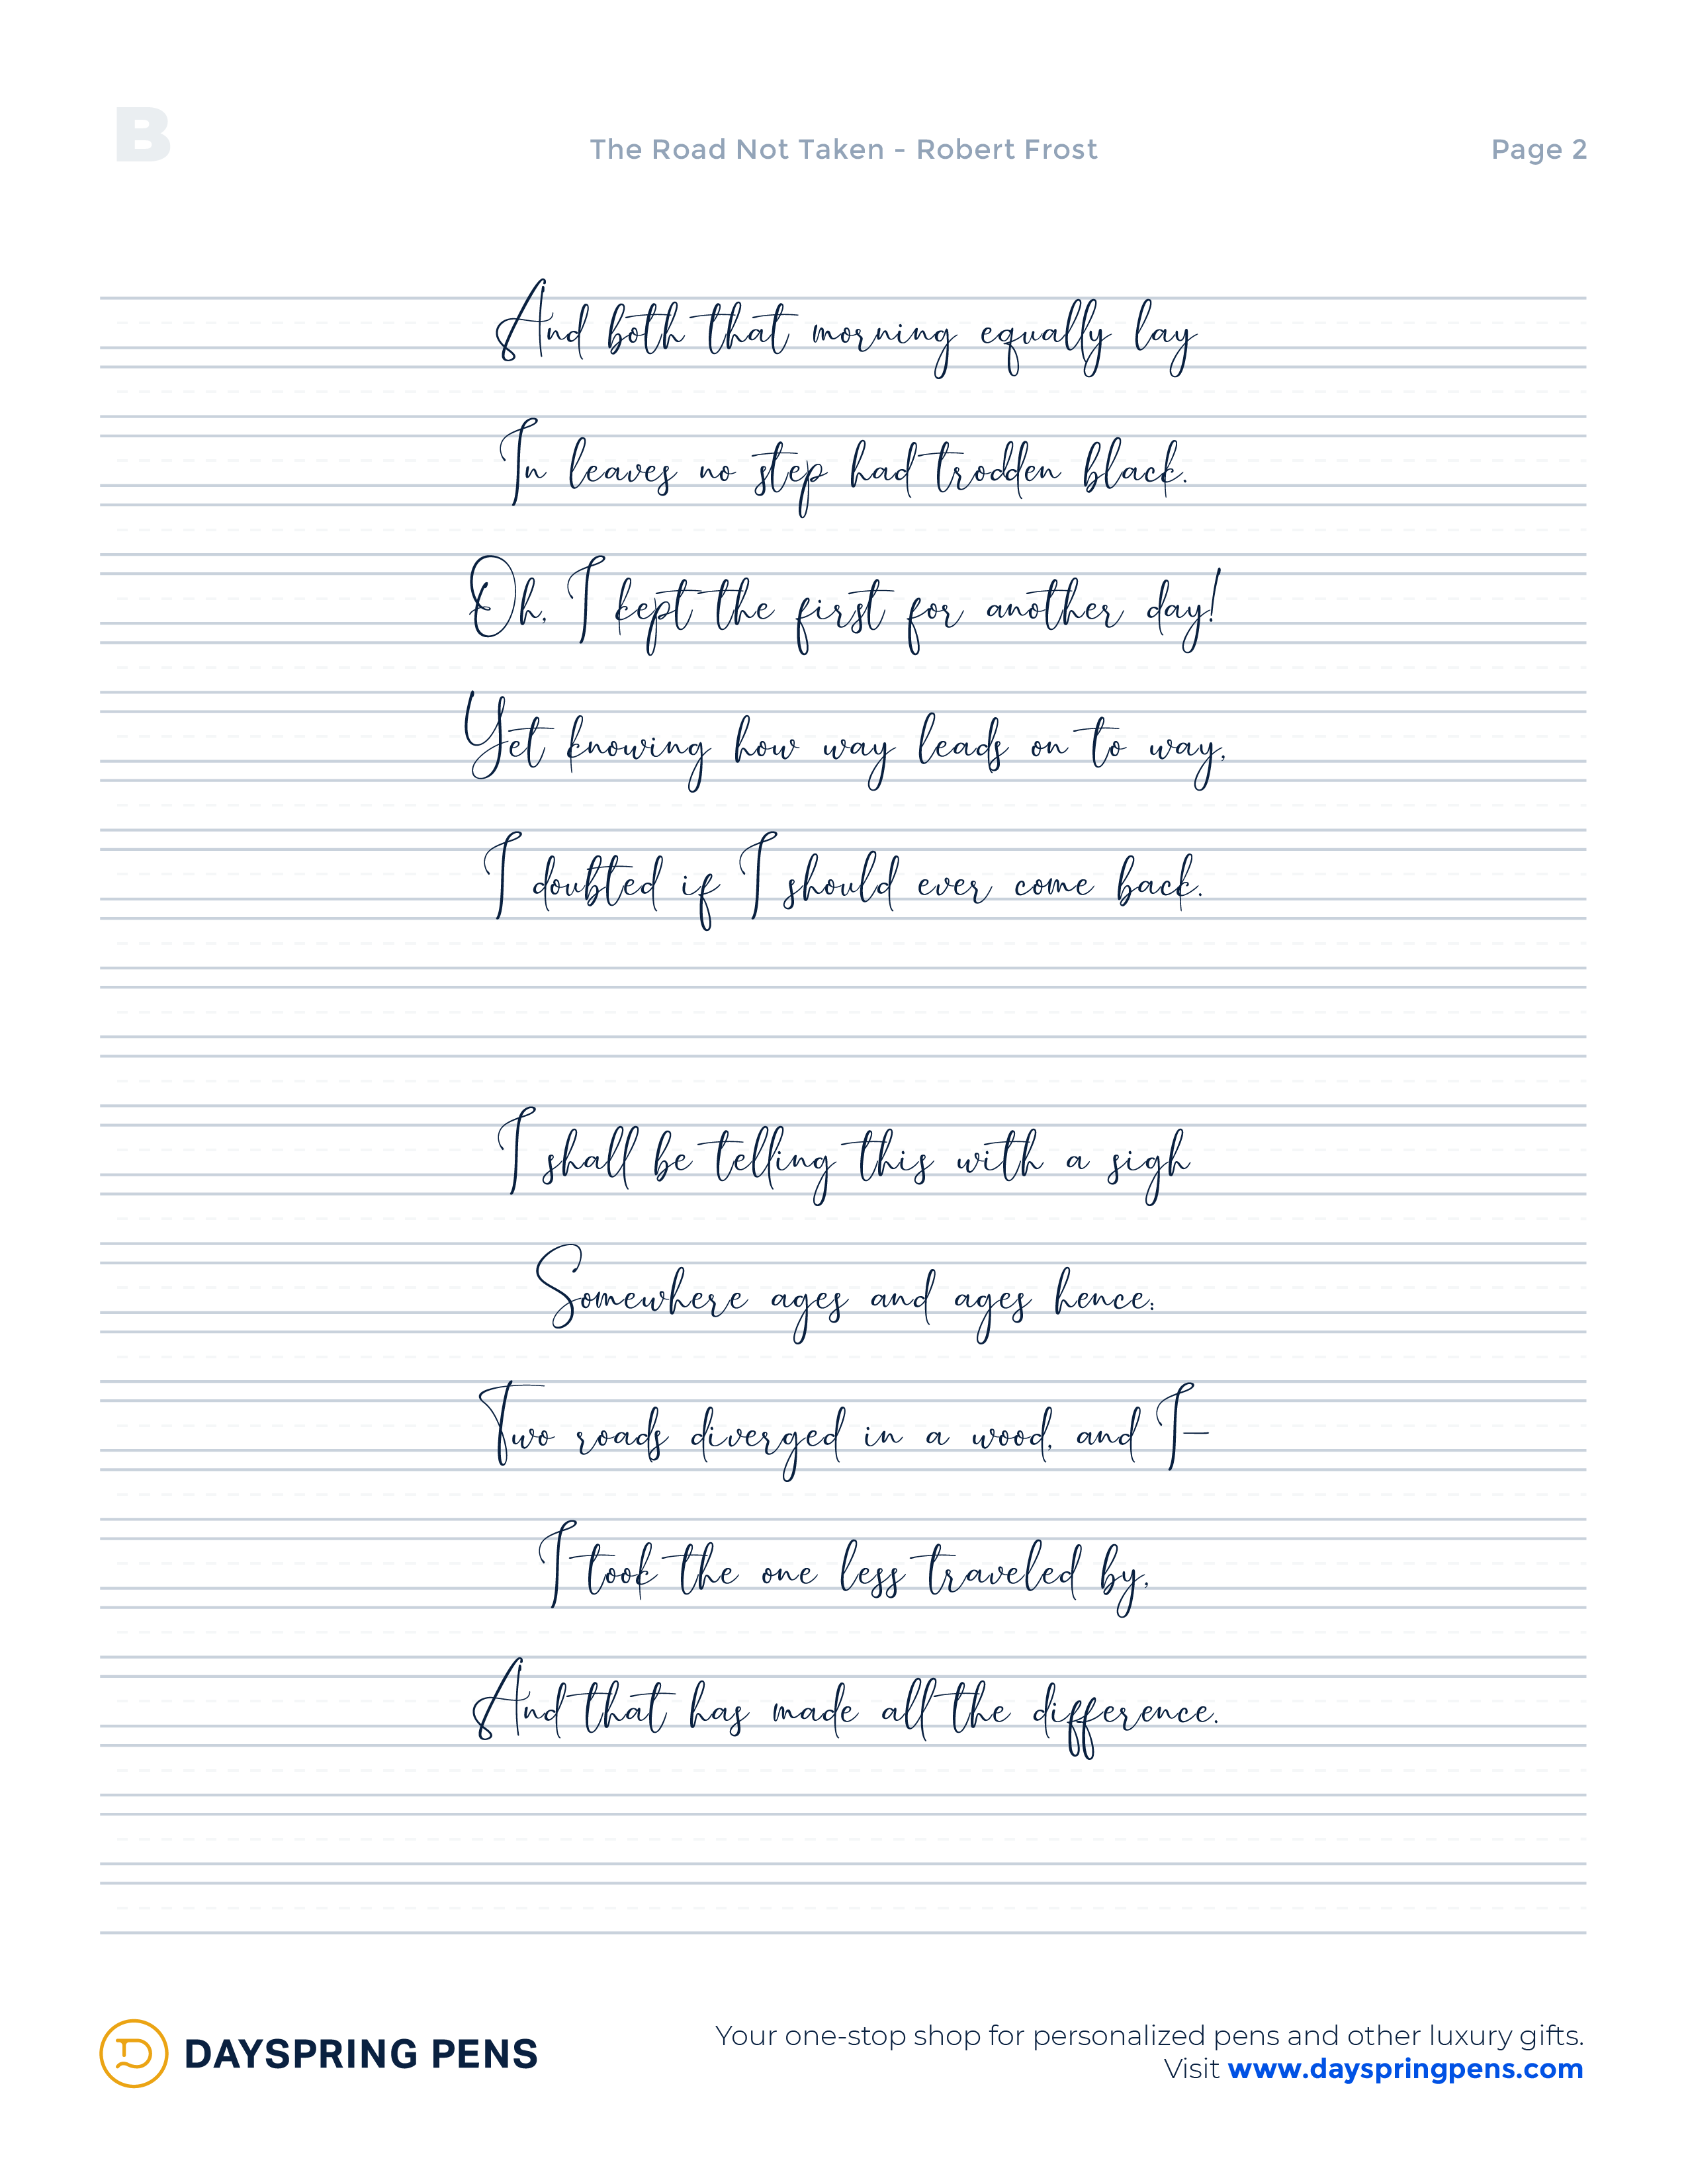 B
The Road Not Taken - Robert Frost
Page 2
And both that morning equally lay
In leaves no step had trodden black.
Oh, I kept the first for another day!
Yet knowing how way leads on to way,
I doubted if I should ever come back.
I shall be telling this with a sigh
Somewhere ages and ages hence:
Two roads diverged in a wood, and I—
I took the one less traveled by,
And that has made all the difference.
DAYSPRING PENS
Your one-stop shop for personalized pens and other luxury gifts.
Visit www.dayspringpens.com